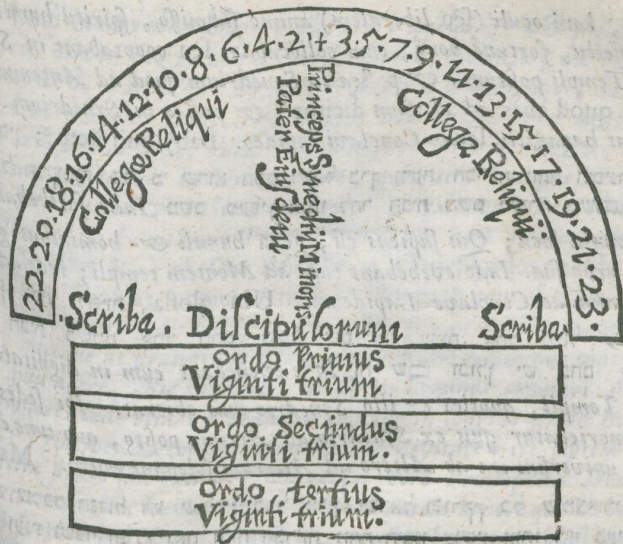 22·20·18·16·14·12·10·8·6·4·2·1·3·5·7·9·11·13·15·17·19·21·23·
Collegæ Reliqui
Princeps Synedrii minoris
Pater Ejusdem
Collegæ Reliqui
Scriba. Discipulorum Scriba
Ordo Primus
Viginti trium
Ordo Secundus
Viginti trium.
Ordo tertius
Viginti trium.